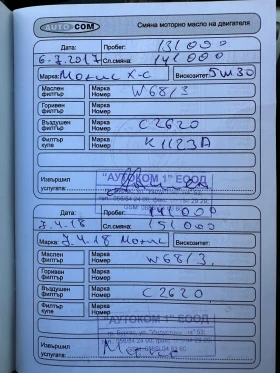 AUTOCOM
Смяна моторно масло на двигателя
Дата: Пробег: 131000
6.7.2017 Сл.смяна: 141000
Марка: Мотис X-C Вискозитет: 5W30
Маслен филтър Марка Номер W68/3
Горивен филтър Марка Номер
Въздушен филтър Марка Номер C2620
Филтър купе Марка Номер K1123A
Извършил услугата:
"АУТОКОМ 1" ЕООД
Дата: Пробег: 141000
7.4.18 Сл.смяна: 151000
Марка: 7.4.18 Мотис Вискозитет:
Маслен филтър Марка Номер W68/3
Горивен филтър Марка Номер
Въздушен филтър Марка Номер C2620
Филтър купе Марка Номер
Извършил услугата:
"АУТОКОМ 1" ЕООД